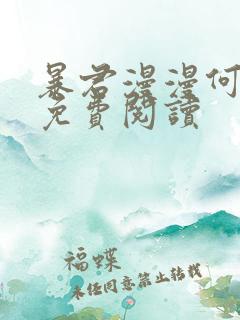 暴君漫漫何
免費閱讀
福蝶
未經同意禁止轉載